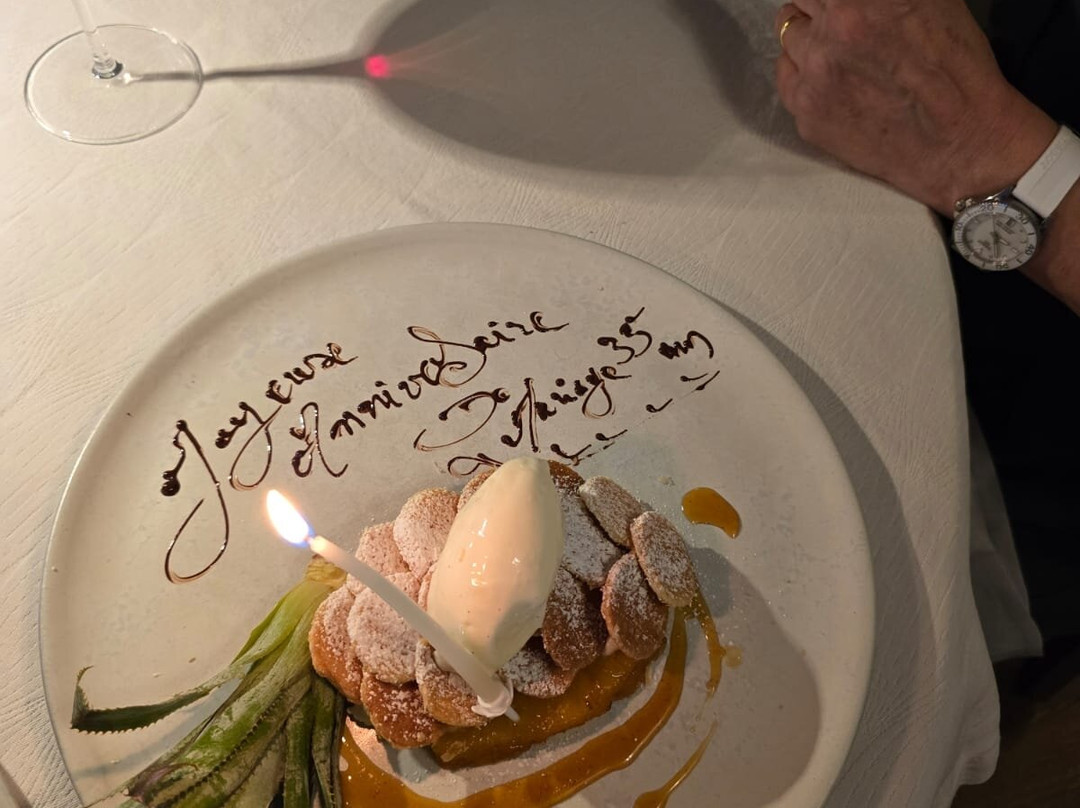 Joyeuse
Anniversaire
De Mariage 35 ans